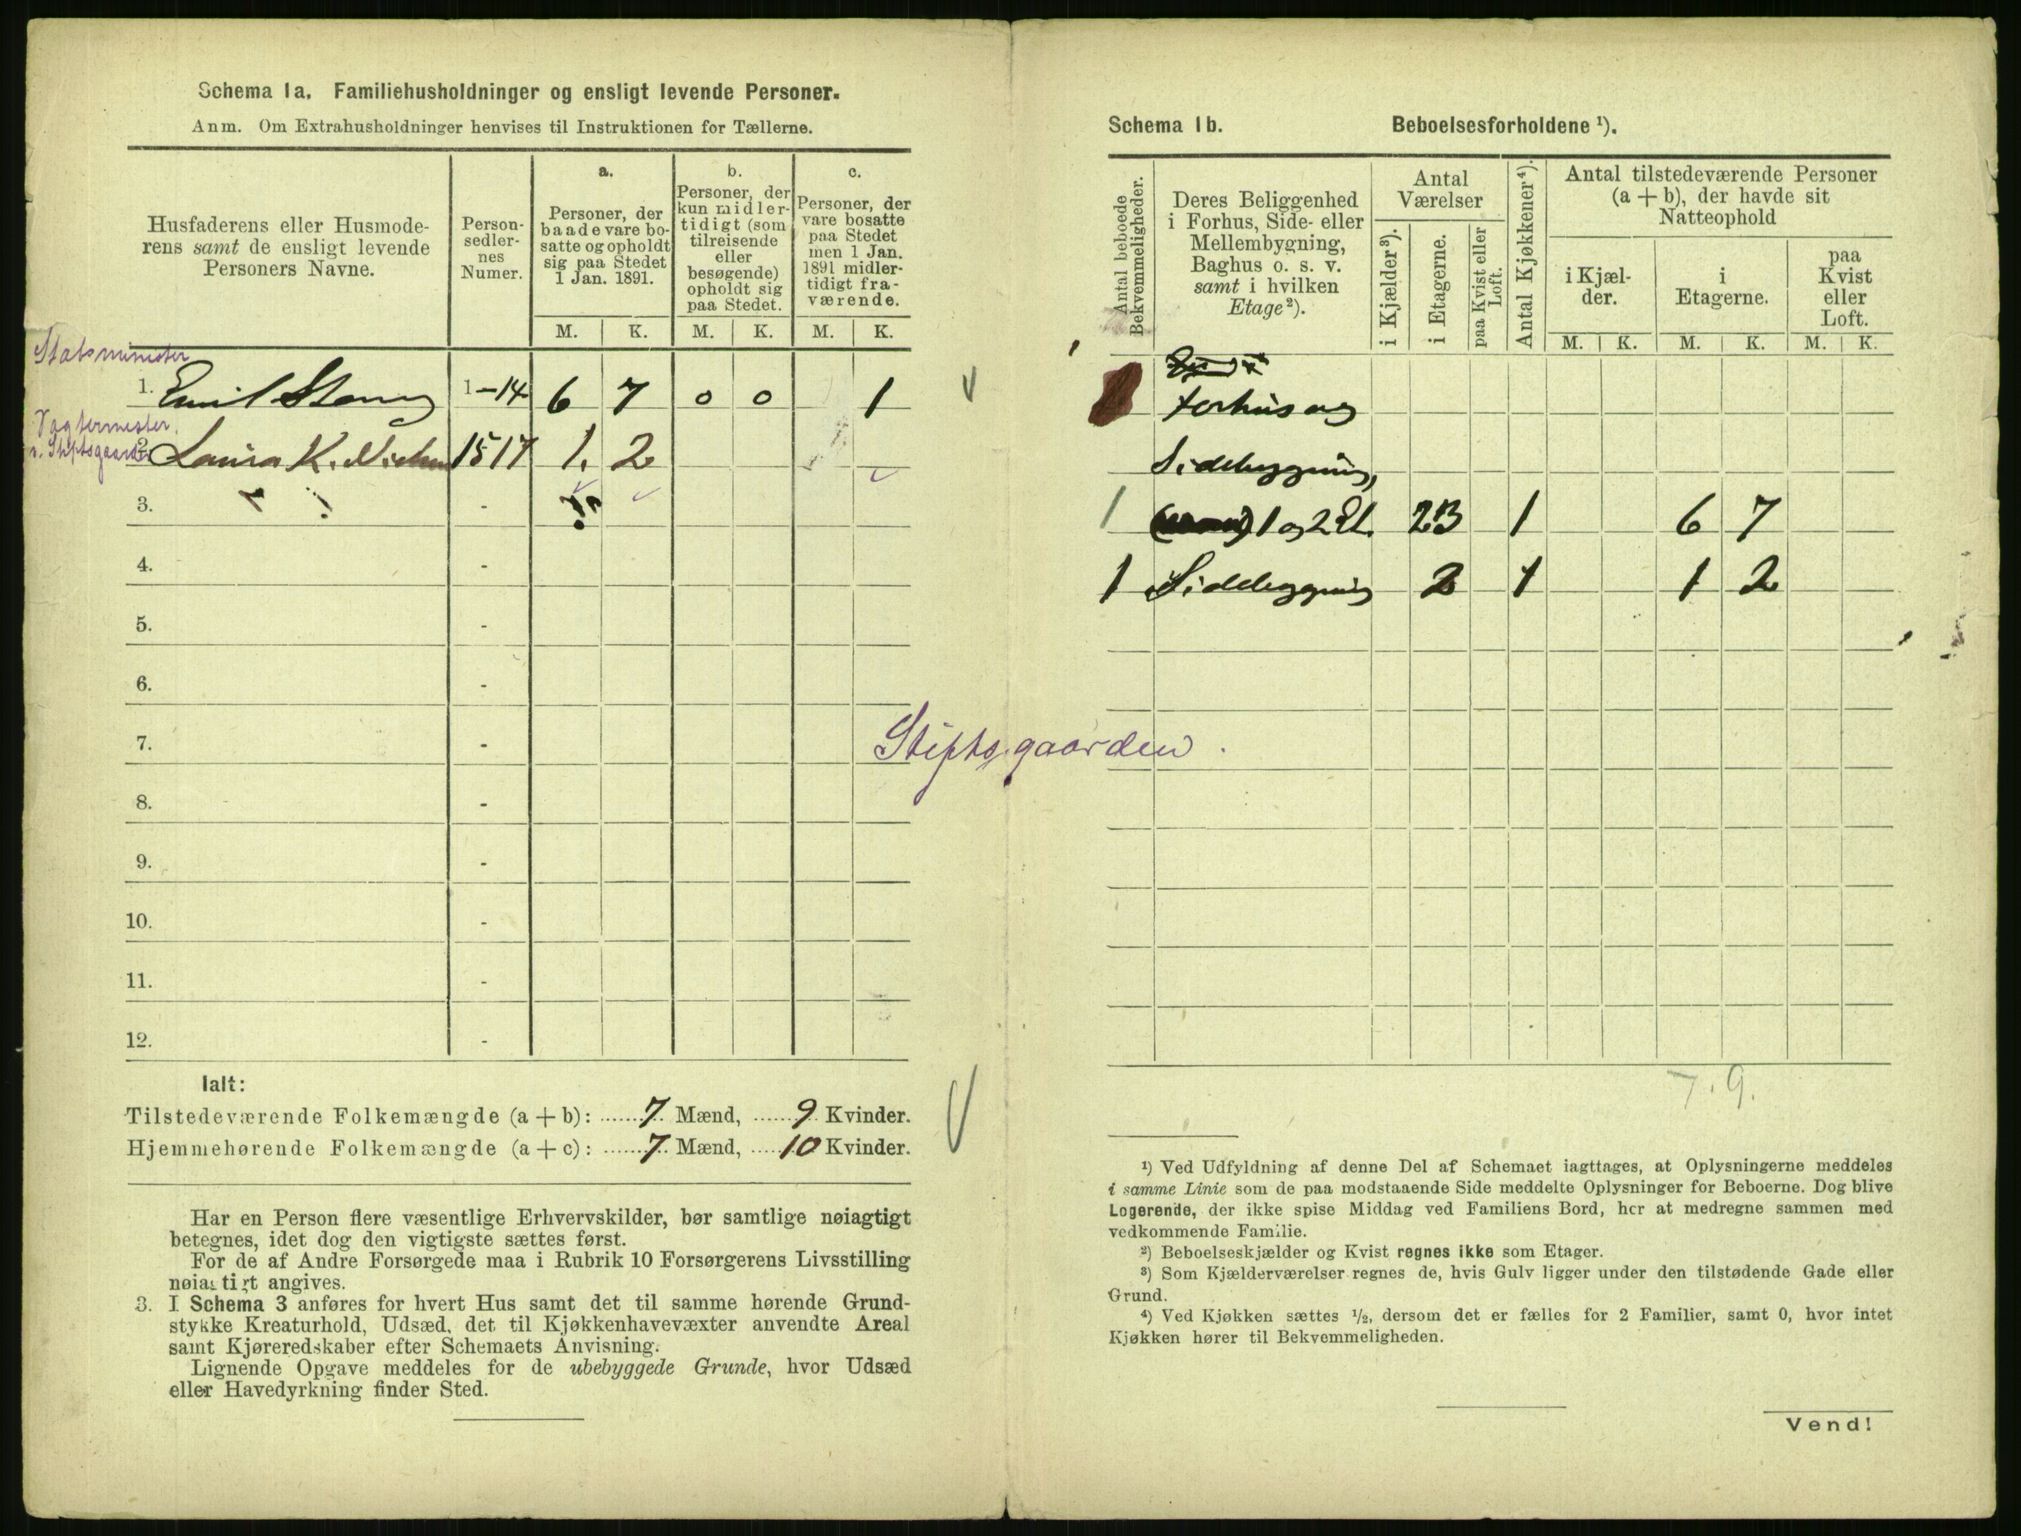 Schema 1a. Familiehusholdninger og ensligt levende Personer.
Anm. Om Extrahusholdninger henvises til Instruktionen for Tællerne.
Husfaderens eller Husmode-
rens samt de ensligt levende
Personers Navne.
Person-
sedler-
nes
Numer.
a.
Personer, der
baade vare bo-
satte og opholdt
sig paa Stedet
1 Jan. 1891.
b.
Personer, der
kun midler-
tidigt (som
tilreisende
eller
besøgende)
opholdt sig
paa Stedet.
c.
Personer, der
vare bosatte
paa Stedet
men 1 Jan.
1891 midler-
tidigt fra-
værende.
M. K. M. K. M. K.
Statsminister
1. Emil Stang 1-14 6 7 0 0 1
Vagtermester
i Stiftsgaarden
2. Laura K. Nielsen 15 17 1. 2
3. -
4. -
5. -
6. -
7. -
8. -
9. -
10. -
11. -
12. -
Stiftsgaarden.
Ialt:
Tilstedeværende Folkemængde (a + b): 7 Mænd, 9 Kvinder.
Hjemmehørende Folkemængde (a + c): 7 Mænd, 10 Kvinder.
Har en Person flere væsentlige Erhvervskilder, bør samtlige nøiagtigt
betegnes, idet dog den vigtigste sættes først.
For de af Andre Forsørgede maa i Rubrik 10 Forsørgerens Livsstilling
nøiagtigt angives.
3. I Schema 3 anføres for hvert Hus samt det til samme hørende Grund-
stykke Kreaturhold, Udsæd, det til Kjøkkenhavevæxter anvendte Areal
samt Kjøreredskaber efter Schemaets Anvisning.
Lignende Opgave meddeles for de ubebyggede Grunde, hvor Udsæd
eller Havedyrkning finder Sted.
Schema 1b. Beboelsesforholdene ¹).
Antal beboede
Bekvemmeligheder.
Deres Beliggenhed
i Forhus, Side- eller
Mellembygning,
Baghus o. s. v.
samt i hvilken
Etage²).
Antal
Værelser
i Kjælder³).
i Etagerne.
paa Kvist eller
Loft.
Antal Kjøkkener⁴).
Antal tilstedeværende Personer
(a + b), der havde sit
Natteophold
i Kjæl-
der.
i
Etagerne.
paa
Kvist
eller
Loft.
M. K. M. K. M. K.
Forhus og
Sidebygning,
1 1 og 2 Et. 23 1 6 7
1 Sidebygning 2 1 1 2
7. 9.
¹) Ved Udfyldning af denne Del af Schemaet iagttages, at Oplysningerne meddeles
i samme Linie som de paa modstaaende Side meddelte Oplysninger for Beboerne. Dog blive
Logerende, der ikke spise Middag ved Familiens Bord, her at medregne sammen med
vedkommende Familie.
²) Beboelseskjælder og Kvist regnes ikke som Etager.
³) Som Kjælderværelser regnes de, hvis Gulv ligger under den tilstødende Gade eller
Grund.
⁴) Ved Kjøkken sættes ½, dersom det er fælles for 2 Familier, samt 0, hvor intet
Kjøkken hører til Bekvemmeligheden.
Vend!